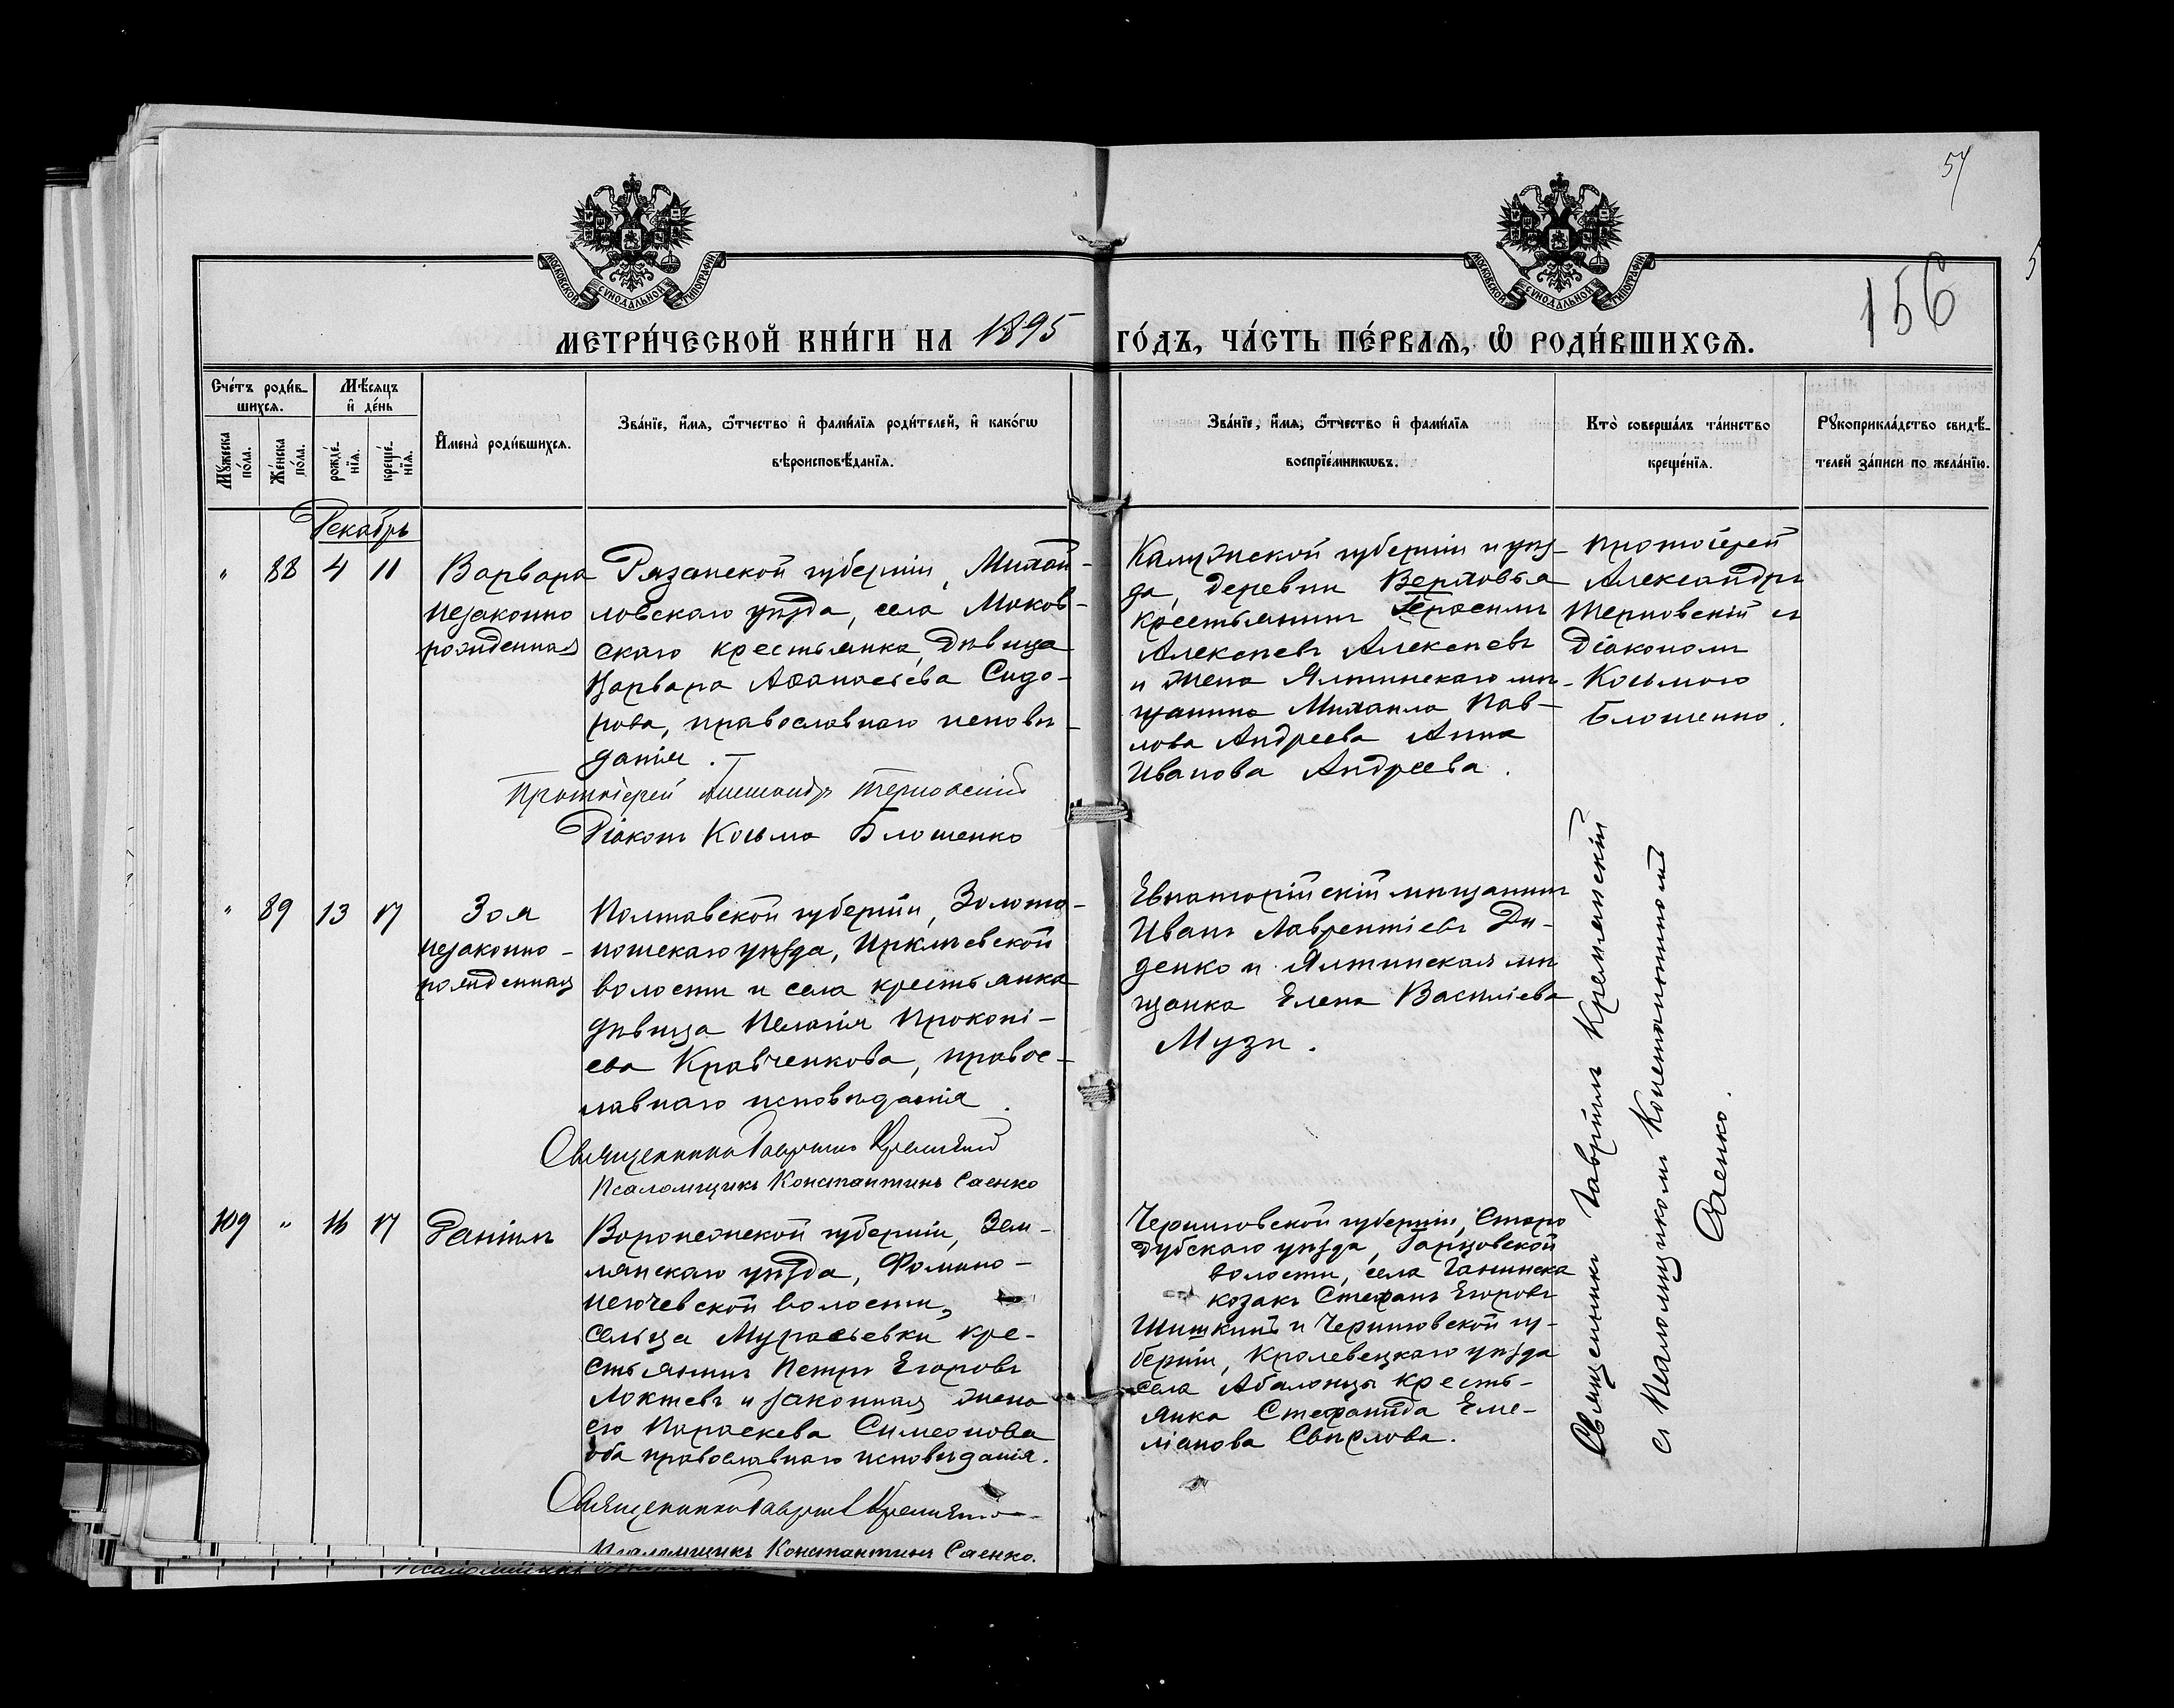 57
156
МОСКОВСКОЙ СУНОДАЛЬНОЙ ТИПОГРАФІИ
МОСКОВСКОЙ СУНОДАЛЬНОЙ ТИПОГРАФІИ
МЕТРИ́ЧЕСКОЙ КНИ́ГИ НА 1895 ГО́ДЪ, ЧА́СТЬ ПЕ́РВАЯ, Ѡ РОДИ́ВШИХСЯ.
Сче́тъ роди́в-
шихся.
Мꙋ́жеска
по́ла.
Же́нска
по́ла.
Мѣ́сяцъ
и҆ де́нь
рожде́-
нїя.
креще́-
нїя.
И҆мена̀ роди́вшихся.
Зва́нїе, и҆́мя, ѻ҆́тчество и҆ фами́лїя роди́телей, и҆ како́гѡ
вѣроисповѣ́данїя.
Зва́нїе, и҆́мя, ѻ҆́тчество и҆ фами́лїя
воспрїе́мникѡвъ.
Кто̀ соверша́лъ та́инство
креще́нїя.
Рꙋкоприкла́дство свидѣ́-
телей за́писи по жела́нїю.
Декабрь
" 88 4 11
Варвара
незаконно
рожденная
Рязанской губерніи, Михай-
ловскаго уѣзда, села Маков-
скаго крестьянка, дѣвица
Варвара Аѳанасіева Сидо-
рова, православнаго исповѣ-
данія. —
Протоіерей Александръ Терновскій
Діаконъ Косьма Блошенко
Калужской губерніи и уѣз-
да, деревни Верховья
крестьянинъ Герасимъ
Алексѣевъ Алексѣевъ
и жена Ялтинскаго мѣ-
щанина Михаила Пав-
лова Андреева Анна
Иванова Андреева.
Протоіерей
Александръ
Терновскій съ
Діакономъ
Косьмою
Блошенко.
" 89 13 17
Зоя
незаконно-
рожденная
Полтавской губерніи, Золото-
ношскаго уѣзда, Ирклѣевской
волости и села крестьянка
дѣвица Пелагія Прокопі-
ева Кравченкова, правос-
лавнаго исповѣданія.
Священникъ Гавріилъ Кремянскій
Псаломщикъ Константинъ Саенко
Евпаторійскій мѣщанинъ
Иванъ Лаврентіевъ Ди-
денко и Ялтинская мѣ
щанка Елена Василіева
Музи.
Священникъ Гавріилъ Кремянскій
съ Псаломщикомъ Константиномъ
Саенко.
109 " 16 17
Даніилъ
Воронежской губерніи, Зем-
лянскаго уѣзда, Фомино-
Негочевской волости,
сельца Мурасьевки кре-
стьянинъ Петръ Егоровъ
Локтевъ и законная жена
его Параскева Симеонова
оба православнаго исповѣданія.
Священникъ Гавріилъ Кремянскій
Псаломщикъ Константинъ Саенко.
Черниговской губерніи, Старо
дубскаго уѣзда, Гарцовской
волости, села
козакъ Стефанъ Егоровъ
Шишкинъ и Черниговской гу-
берніи, Кролевецкаго уѣзда
села кресть-
янка Стефанида Еме-
ліанова